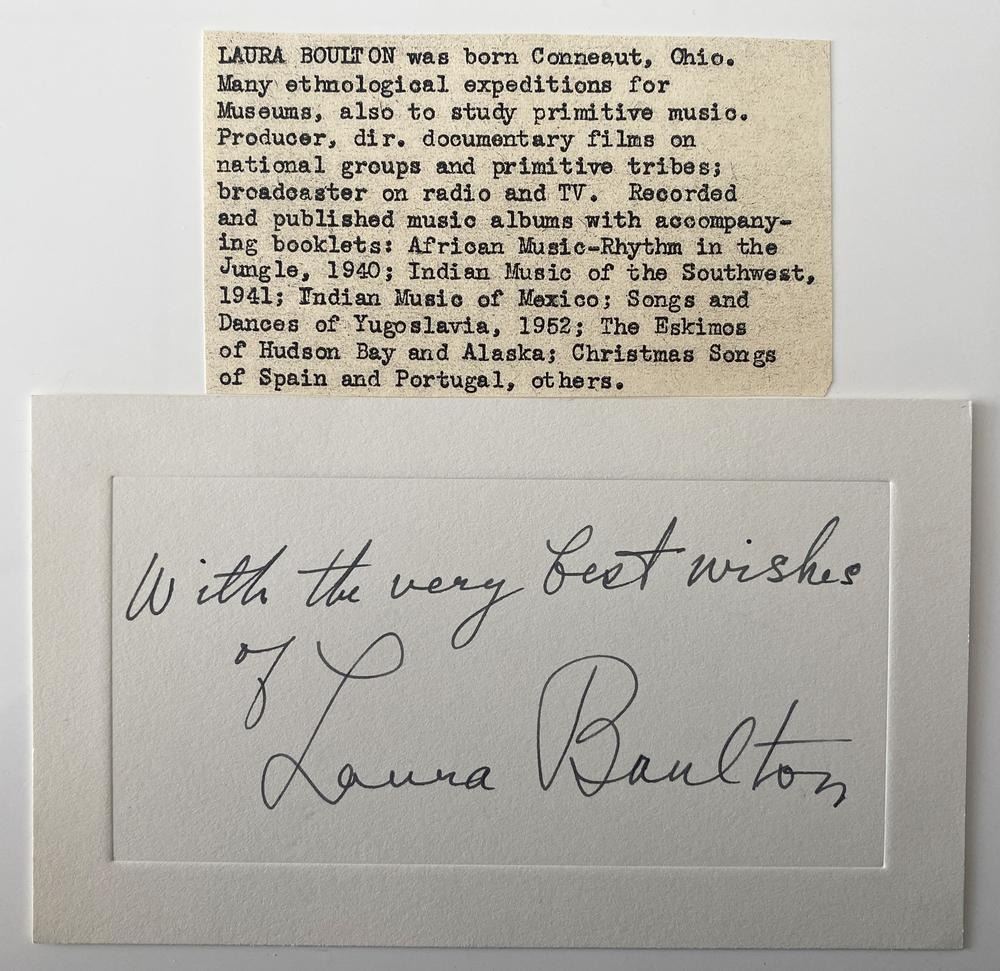 LAURA BOULTON was born Conneaut, Ohio.
Many ethnological expeditions for
Museums, also to study primitive music.
Producer, dir. documentary films on
national groups and primitive tribes;
broadcaster on radio and TV. Recorded
and published music albums with accompany-
ing booklets: African Music-Rhythm in the
Jungle, 1940; Indian Music of the Southwest,
1941; Indian Music of Mexico; Songs and
Dances of Yugoslavia, 1952; The Eskimos
of Hudson Bay and Alaska; Christmas Songs
of Spain and Portugal, others.
With the very best wishes
of
Laura Boulton